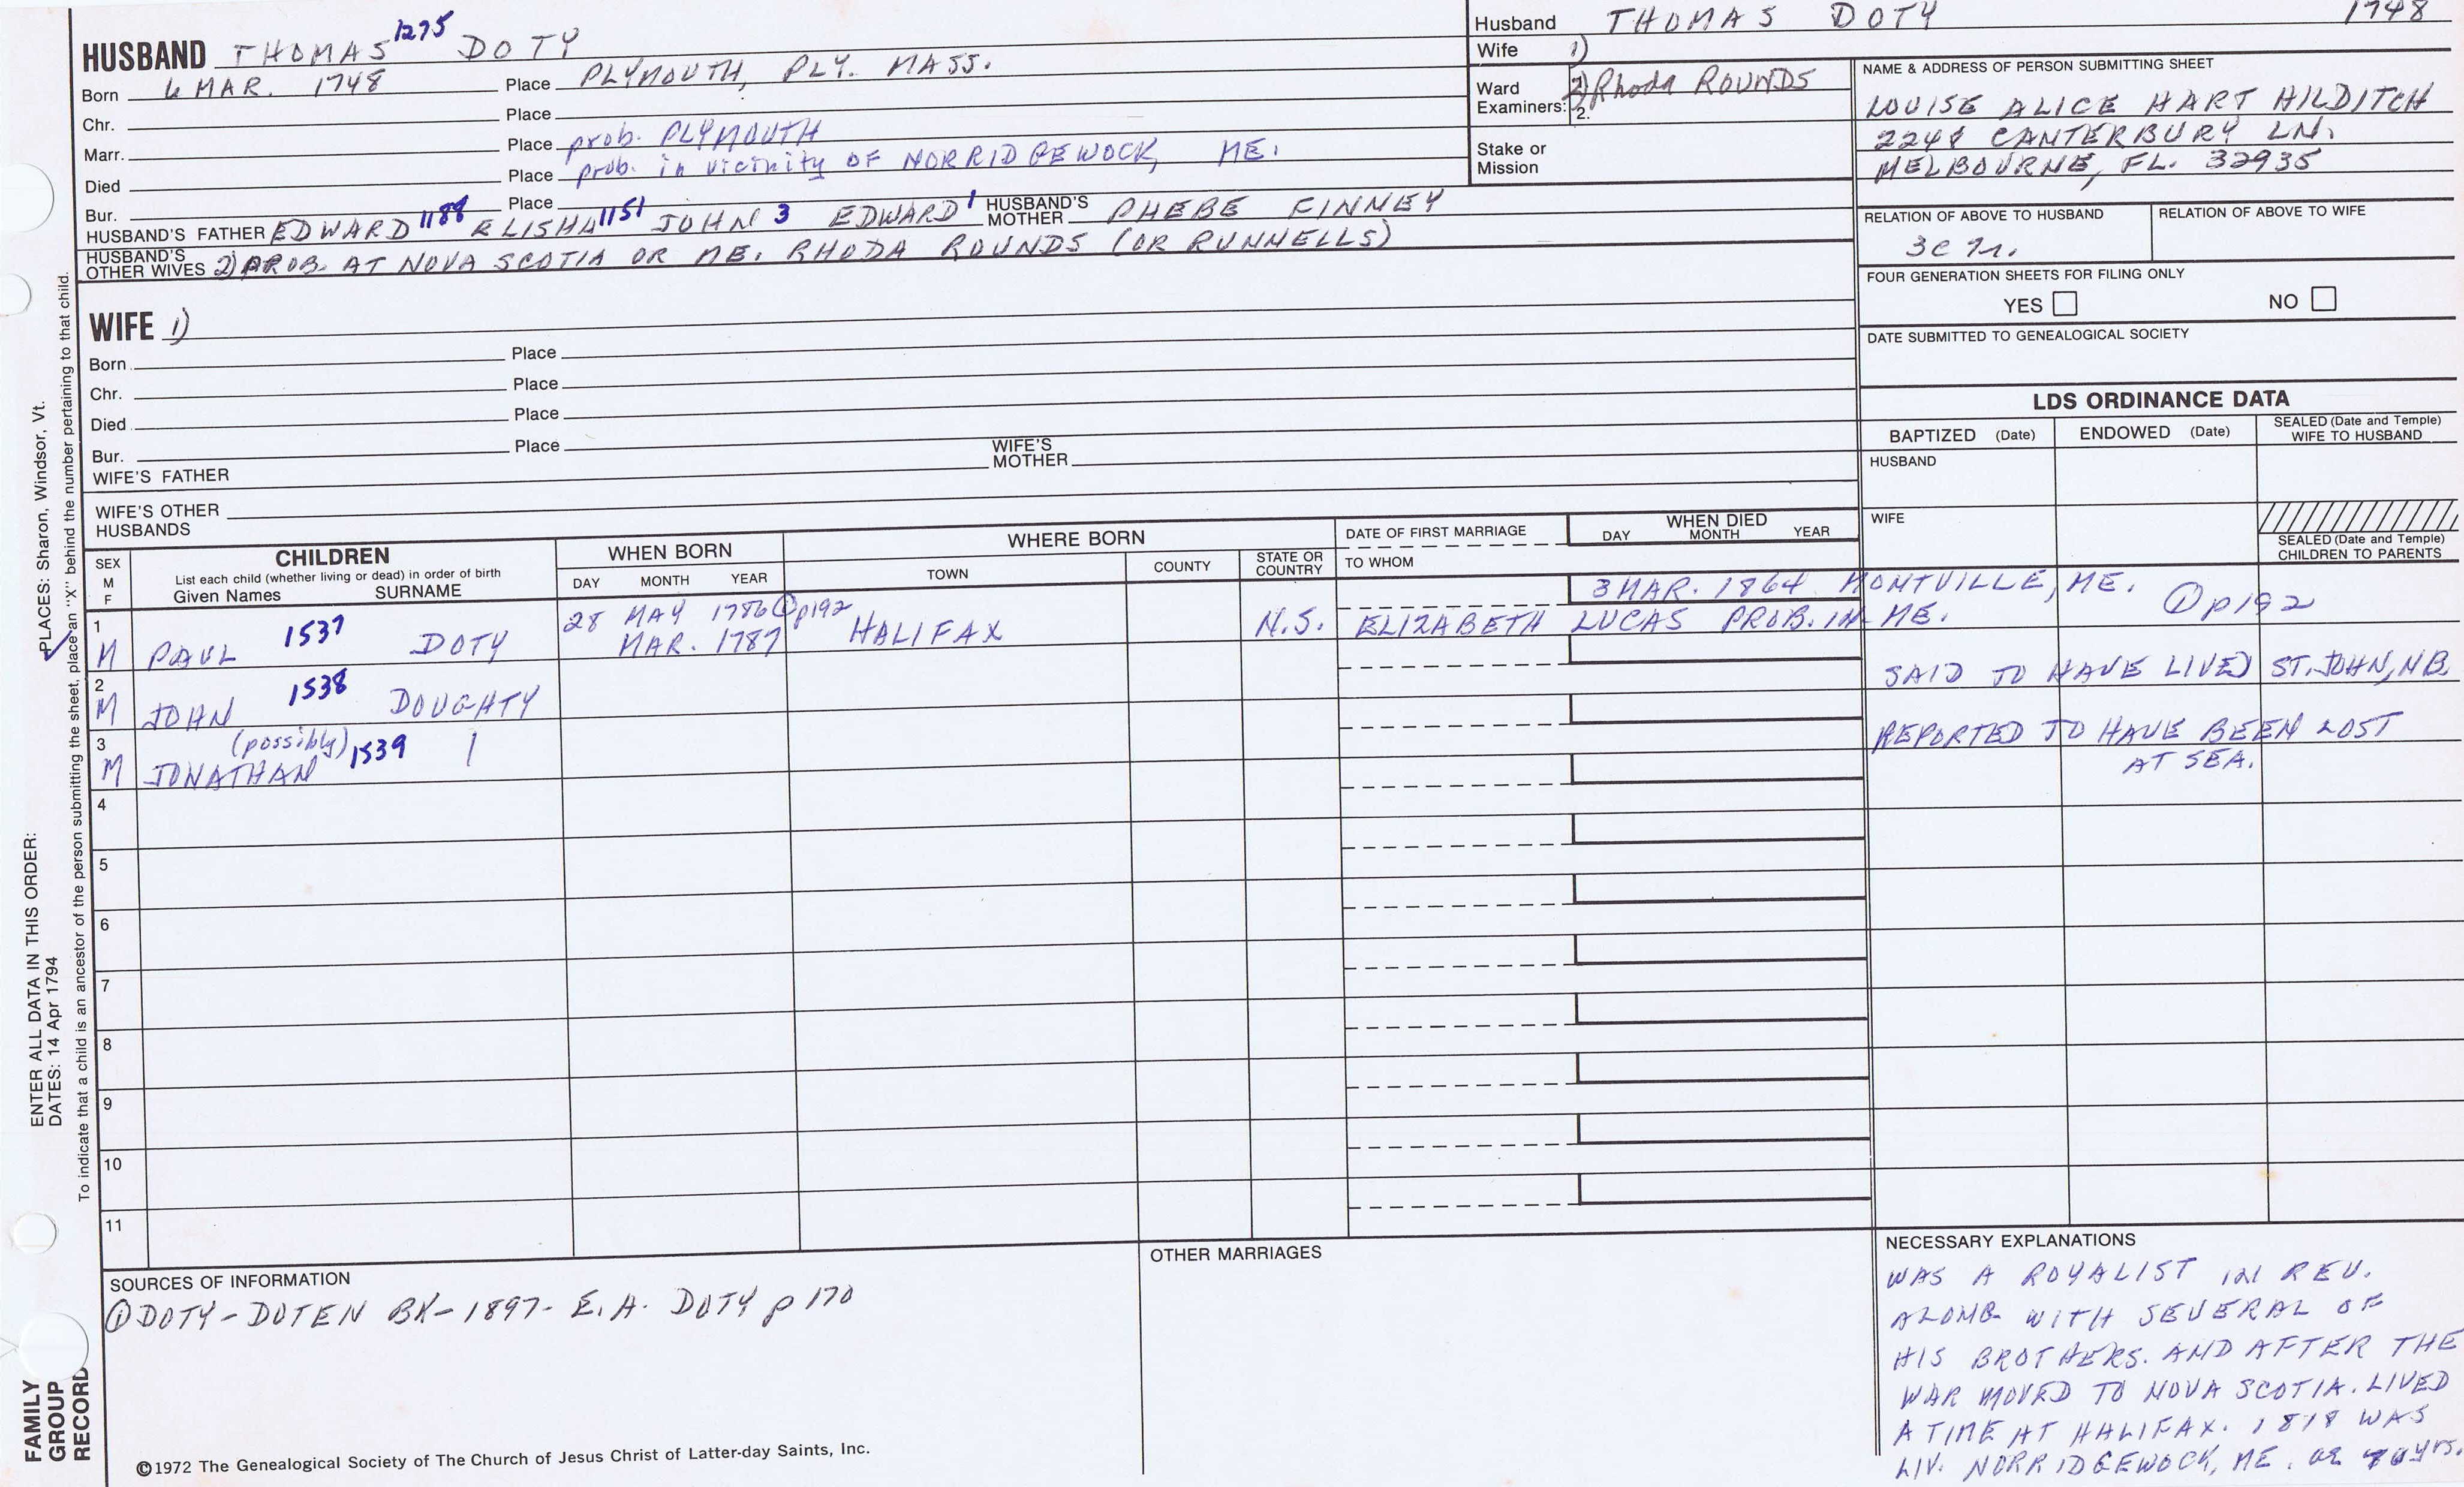 HUSBAND THOMAS 1275 DOTY
Born 6 MAR. 1748 Place PLYMOUTH, PLY. MASS.
Chr. Place
Marr. Place prob. PLYMOUTH
Died Place prob. in vicinity OF NORRIDGEWOCK, ME.
Bur. Place
HUSBAND'S FATHER EDWARD 1188 ELISHA 1151 JOHN 3 EDWARD 1 HUSBAND'S MOTHER PHEBE FINNEY
HUSBAND'S OTHER WIVES 2) PROB. AT NOVA SCOTIA OR ME. RHODA ROUNDS (OR RUNNELLS)
Husband THOMAS DOTY 1748
Wife 1)
Ward Examiners: 2) Rhoda ROUNDS
2.
Stake or Mission
NAME & ADDRESS OF PERSON SUBMITTING SHEET
LOUISE ALICE HART HILDITCH
2248 CANTERBURY LN.
MELBOURNE, FL. 32935
RELATION OF ABOVE TO HUSBAND RELATION OF ABOVE TO WIFE
FOUR GENERATION SHEETS FOR FILING ONLY
YES NO
DATE SUBMITTED TO GENEALOGICAL SOCIETY
WIFE 1)
Born Place
Chr. Place
Died Place
Bur. Place
WIFE'S FATHER WIFE'S MOTHER
WIFE'S OTHER HUSBANDS
LDS ORDINANCE DATA
BAPTIZED (Date) ENDOWED (Date) SEALED (Date and Temple) WIFE TO HUSBAND
HUSBAND
WIFE
SEALED (Date and Temple) CHILDREN TO PARENTS
SEX M F
CHILDREN
List each child (whether living or dead) in order of birth
Given Names SURNAME
WHEN BORN
DAY MONTH YEAR
WHERE BORN
TOWN COUNTY STATE OR COUNTRY
DATE OF FIRST MARRIAGE
TO WHOM
WHEN DIED
DAY MONTH YEAR
1 28 MAY 1786 ① p192 3 MAR. 1864 MONTVILLE, ME. ① p192
M PAUL 1537 DOTY MAR. 1787 HALIFAX N.S. ELIZABETH LUCAS PROB. IN ME.
2 SAID TO HAVE LIVED ST. JOHN, N.B.
M JOHN 1538 DOUGHTY
3 (possibly) REPORTED TO HAVE BEEN LOST
M JONATHAN 1539 AT SEA.
4
5
6
7
8
9
10
11
SOURCES OF INFORMATION
① DOTY-DOTEN BK-1897- E.A. DOTY p 170
OTHER MARRIAGES
NECESSARY EXPLANATIONS
WAS A ROYALIST IN REV.
ALONG WITH SEVERAL OF
HIS BROTHERS. AND AFTER THE
WAR MOVED TO NOVA SCOTIA. LIVED
A TIME AT HALIFAX. 1818 WAS
LIV. NORRIDGEWOCK, ME. 70 yrs.
©1972 The Genealogical Society of The Church of Jesus Christ of Latter-day Saints, Inc.
FAMILY GROUP RECORD
ENTER ALL DATA IN THIS ORDER:
DATES: 14 Apr 1794
PLACES: Sharon, Windsor, Vt.
To indicate that a child is an ancestor of the person submitting the sheet, place an "X" behind the number pertaining to that child.